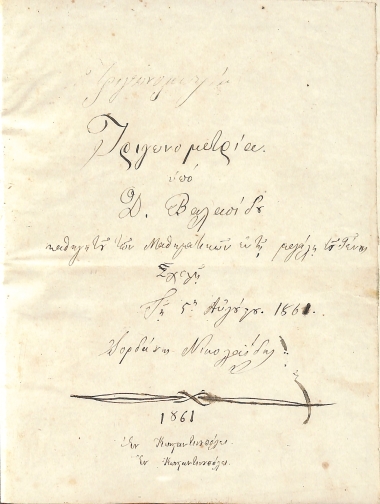 Τριγωνομετρία
Τριγωνομετρία.
ὑπό
Δ.
καθηγητοῦ τῶν Μαθηματικῶν ἐν τῇ μεγάλῃ τοῦ Γένους
Σχολῇ
Τῇ 5ῃ Αὐγούστ. 1861.
Ἰορδάνης Νικολαΐδης
1861
Ἐν Κωνσταντινουπόλει
Ἐν Κωνσταντινουπόλει